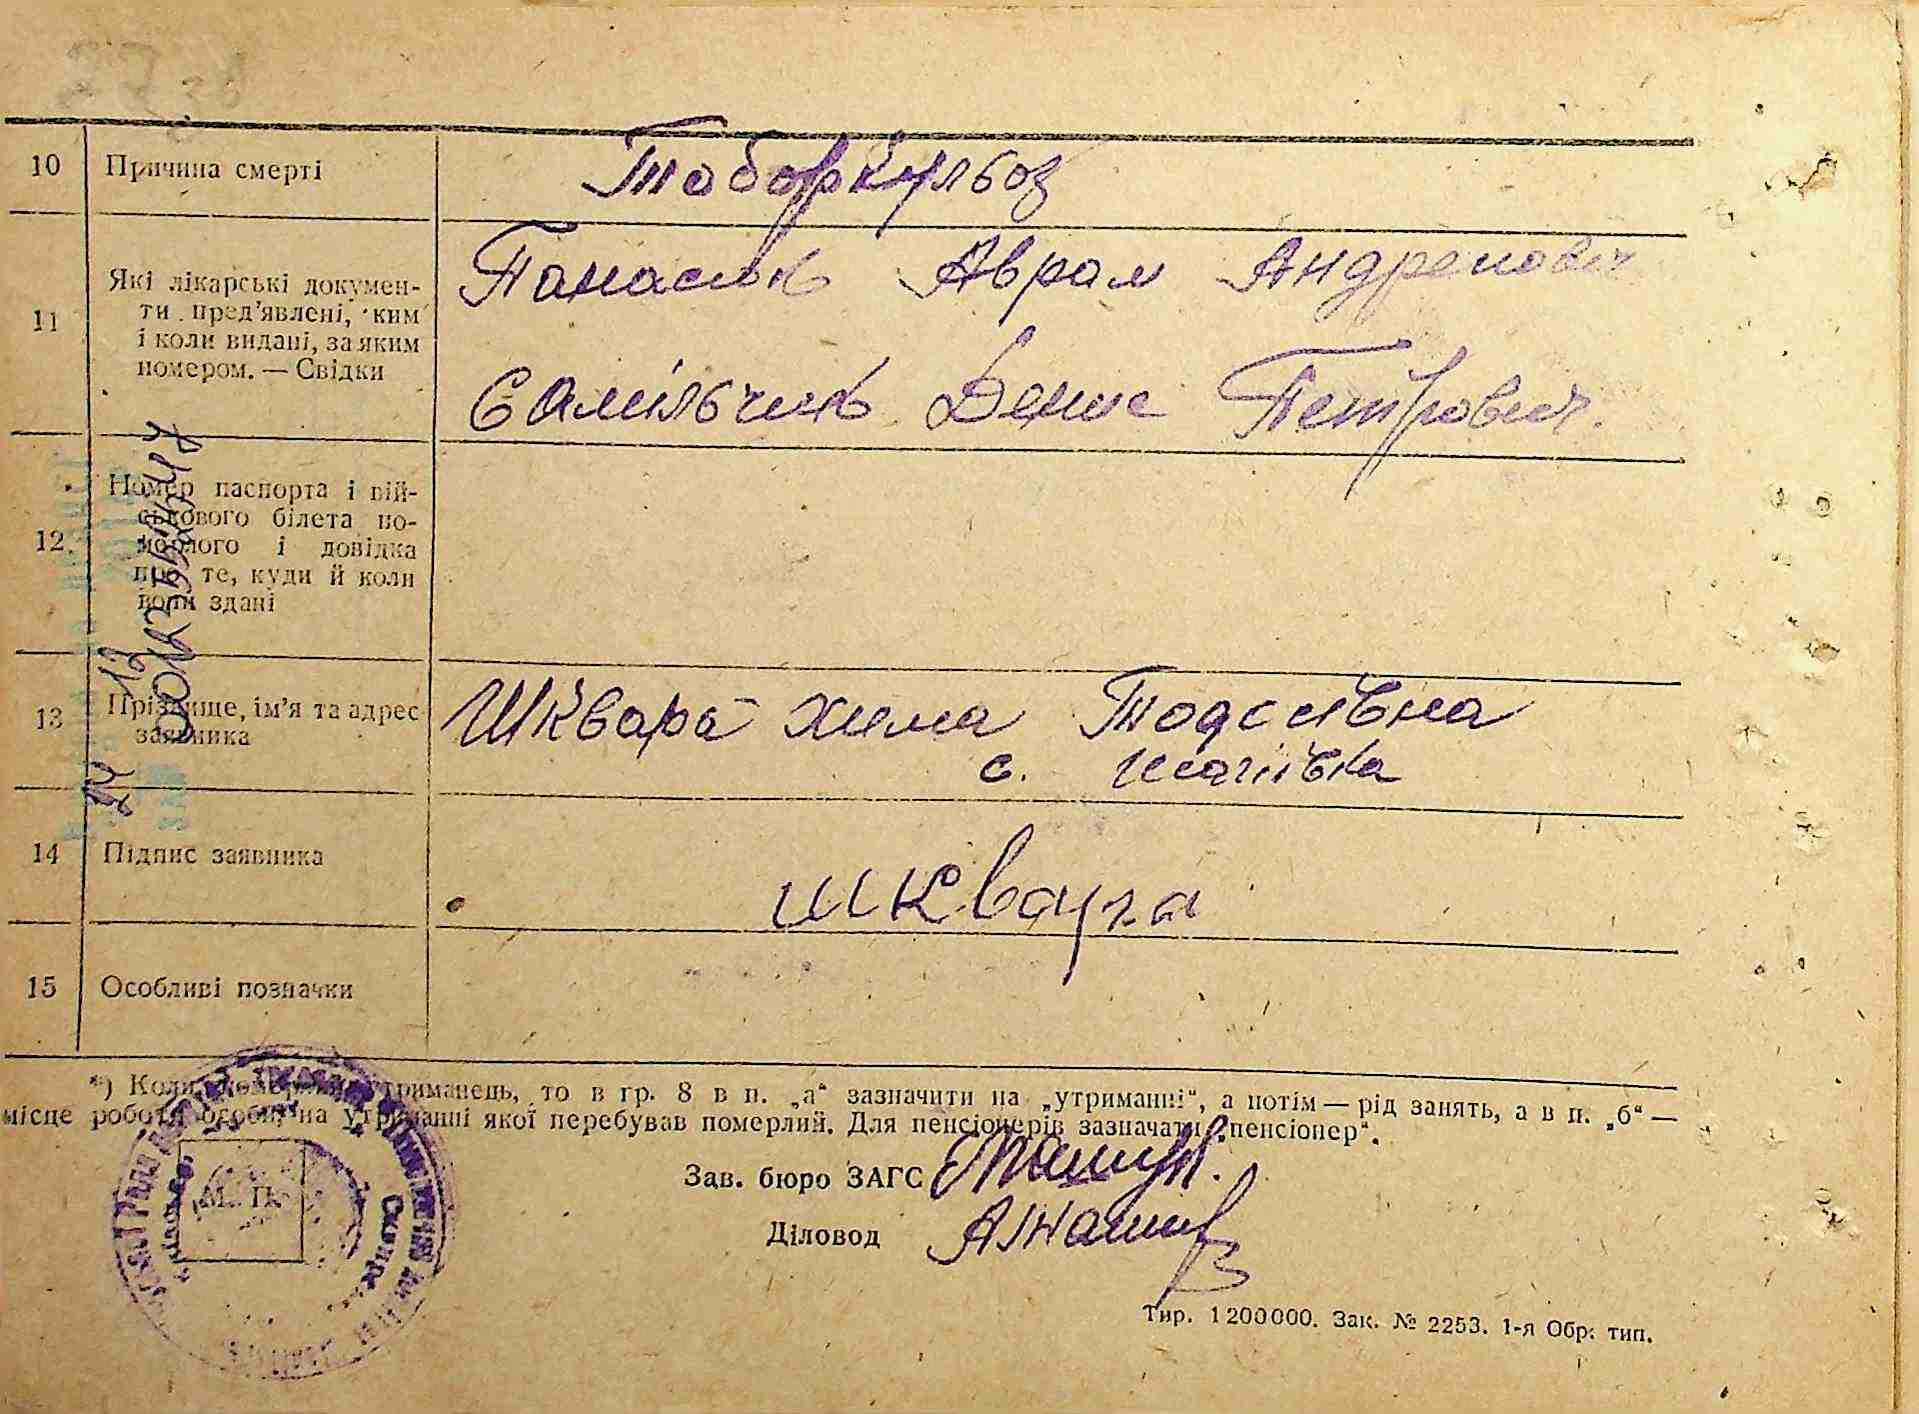 10 Причина смерті Тоборкульоз
11 Які лікарські докумен-
ти пред'явлені, ким
і коли видані, за яким
номером. — Свідки
Панасюк Аврам Андреиович
Самільчик Денис Петрович.
12 Номер паспорта і вій-
ськового білета по-
мерлого і довідка
про те, куди й коли
вони здані
13 Прізвище, ім'я та адрес
заявника
Шквара Хима Тодосивна
с.
14 Підпис заявника Шквара
15 Особливі позначки
*) Коли помер утриманець, то в гр. 8 в п. „а“ зазначити на „утриманні“, а потім — рід занять, а в п. „б“ —
місце роботи особи, на утриманні якої перебував померлий. Для пенсіонерів зазначати „пенсіонер“.
Зав. бюро ЗАГС
Діловод
М. П.
Тир. 1200000. Зак. № 2253. 1-я Обр. тип.